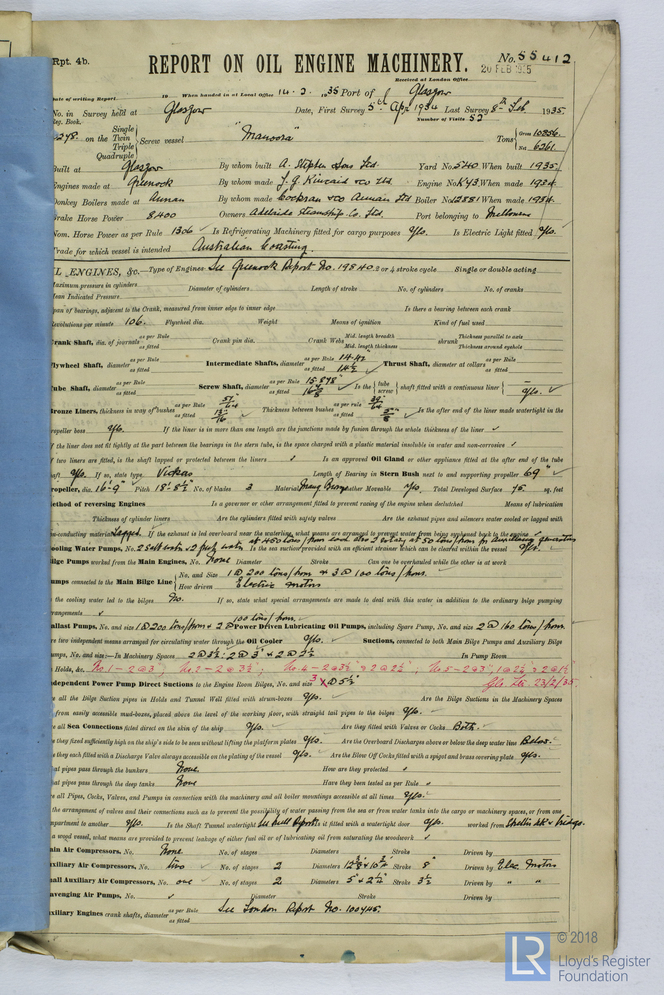 Rpt. 4b.
REPORT ON OIL ENGINE MACHINERY.
No. 55412
Received at London Office
20 FEB 1935
Date of writing Report 19 When handed in at Local Office 14.2.1935 Port of Glasgow
No. in Survey held at Glasgow Date, First Survey 5th Apr 1934 Last Survey 8th Feb. 1935.
Reg. Book. Number of Visits 52
on the Single Twin Triple Quadruple Screw vessel "Manoora" Tons Gross 10856. Net 6261.
Built at Glasgow By whom built A. Stephen & Sons Ltd. Yard No. 540 When built 1935.
Engines made at Greenock By whom made J. G. Kincaid & Co Ltd. Engine No. K43 When made 1934.
Donkey Boilers made at Annan By whom made Cochran & Co Annan Ltd Boiler No. 12881 When made 1934.
Brake Horse Power 8400 Owners Adelaide Steamship Co. Ltd. Port belonging to Melbourne
Nom. Horse Power as per Rule 1306 Is Refrigerating Machinery fitted for cargo purposes Yes. Is Electric Light fitted Yes.
Trade for which vessel is intended Australian Coasting.
IL ENGINES, &c. Type of Engines See Greenock Report No. 19840. 2 or 4 stroke cycle Single or double acting
Maximum pressure in cylinders Diameter of cylinders Length of stroke No. of cylinders No. of cranks
Mean Indicated Pressure
Span of bearings, adjacent to the Crank, measured from inner edge to inner edge Is there a bearing between each crank
Revolutions per minute 106. Flywheel dia. Weight Means of ignition Kind of fuel used
Crank Shaft, dia. of journals as per Rule as fitted Crank pin dia. Crank Webs Mid. length breadth Mid. length thickness shrunk Thickness parallel to axis Thickness around eyehole
Flywheel Shaft, diameter as per Rule as fitted Intermediate Shafts, diameter as per Rule 14.42" as fitted 14½" Thrust Shaft, diameter at collars as per Rule as fitted
Tube Shaft, diameter as per Rule as fitted Screw Shaft, diameter as per Rule 15.878" as fitted Is the tube screw shaft fitted with a continuous liner Yes.
Bronze Liners, thickness in way of bushes as per Rule as fitted 13/16" Thickness between bushes as per rule as fitted Is the after end of the liner made watertight in the
propeller boss Yes. If the liner is in more than one length are the junctions made by fusion through the whole thickness of the liner
If the liner does not fit tightly at the part between the bearings in the stern tube, is the space charged with a plastic material insoluble in water and non-corrosive
If two liners are fitted, is the shaft lapped or protected between the liners Is an approved Oil Gland or other appliance fitted at the after end of the tube
shaft Yes. If so, state type Vickers Length of Bearing in Stern Bush next to and supporting propeller 69"
Propeller, dia. 16'-9" Pitch 18'-8½" No. of blades 3 Material Mang Bronze whether Moveable Yes. Total Developed Surface 75. sq. feet
Method of reversing Engines Is a governor or other arrangement fitted to prevent racing of the engine when declutched Means of lubrication
Thickness of cylinder liners Are the cylinders fitted with safety valves Are the exhaust pipes and silencers water cooled or lagged with
non-conducting material Lagged. If the exhaust is led overboard near the waterline, what means are arranged to prevent water from being syphoned back to the engine
at 450 tons/hour and also 2 rotary at 50 tons/hour for auxiliary generators
Cooling Water Pumps, No. 2 salt water & 2 fresh water Is the sea suction provided with an efficient strainer which can be cleared within the vessel Yes.
Bilge Pumps worked from the Main Engines, No. None Diameter Stroke Can one be overhauled while the other is at work
Pumps connected to the Main Bilge Line No. and Size 1 @ 200 tons/hour & 3 @ 100 tons/hour.
How driven Electric motors
Is the cooling water led to the bilges No. If so, state what special arrangements are made to deal with this water in addition to the ordinary bilge pumping
arrangements
Ballast Pumps, No. and size 1 @ 200 tons/hour & 2 @ 100 tons/hour. Power Driven Lubricating Oil Pumps, including Spare Pump, No. and size 2 @ 160 tons/hour.
Are two independent means arranged for circulating water through the Oil Cooler Yes. Suctions, connected to both Main Bilge Pumps and Auxiliary Bilge
Pumps, No. and size:—In Machinery Spaces 2 @ 3½"; 2 @ 3" & 2 @ 2½" In Pump Room
In Holds, &c. No. 1 - 2 @ 3; No. 2 - 2 @ 3½"; No. 4 - 2 @ 3½ & 2 @ 2½"; No. 5 - 2 @ 3"
Independent Power Pump Direct Suctions to the Engine Room Bilges, No. and size 3 @ 5½" 23/2/35.
Are all the Bilge Suction pipes in Holds and Tunnel Well fitted with strum-boxes Yes. Are the Bilge Suctions in the Machinery Spaces
led from easily accessible mud-boxes, placed above the level of the working floor, with straight tail pipes to the bilges Yes.
Are all Sea Connections fitted direct on the skin of the ship Yes. Are they fitted with Valves or Cocks Both.
Are they fixed sufficiently high on the ship's side to be seen without lifting the platform plates Yes. Are the Overboard Discharges above or below the deep water line Below.
Are they each fitted with a Discharge Valve always accessible on the plating of the vessel Yes. Are the Blow Off Cocks fitted with a spigot and brass covering plate Yes.
What pipes pass through the bunkers None. How are they protected
What pipes pass through the deep tanks None Have they been tested as per Rule
Are all Pipes, Cocks, Valves, and Pumps in connection with the machinery and all boiler mountings accessible at all times Yes.
Is the arrangement of valves and their connections such as to prevent the possibility of water passing from the sea or from water tanks into the cargo or machinery spaces, or from one
compartment to another Yes. Is the Shaft Tunnel watertight See Hull Report. Is it fitted with a watertight door Yes. worked from Shelter dk & bridge.
If a wood vessel, what means are provided to prevent leakage of either fuel oil or of lubricating oil from saturating the woodwork
Main Air Compressors, No. None No. of stages Diameters Stroke Driven by
Auxiliary Air Compressors, No. two No. of stages 2 Diameters Stroke 8" Driven by Elec. Motors
Small Auxiliary Air Compressors, No. one No. of stages 2 Diameters 5" & 2½" Stroke 3½ Driven by " "
Scavenging Air Pumps, No. Diameter Stroke Driven by
Auxiliary Engines crank shafts, diameter as per Rule as fitted See London Report No. 100445.
LR
© 2018
Lloyd's Register
Foundation